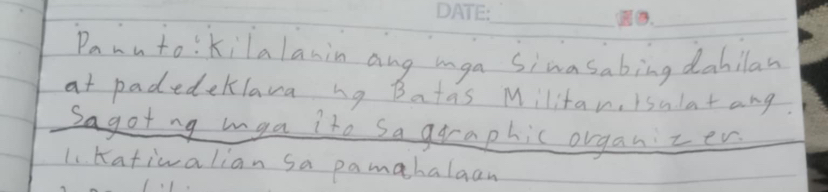 DATE:
NO.
Panuto: Kilalanin ang mga Sinasabing dahilan
at padedeklara ng Batas Militar. Isulat ang
Sagot ng mga ito sa graphic organizer.
1. Katiwalian sa pamahalaan